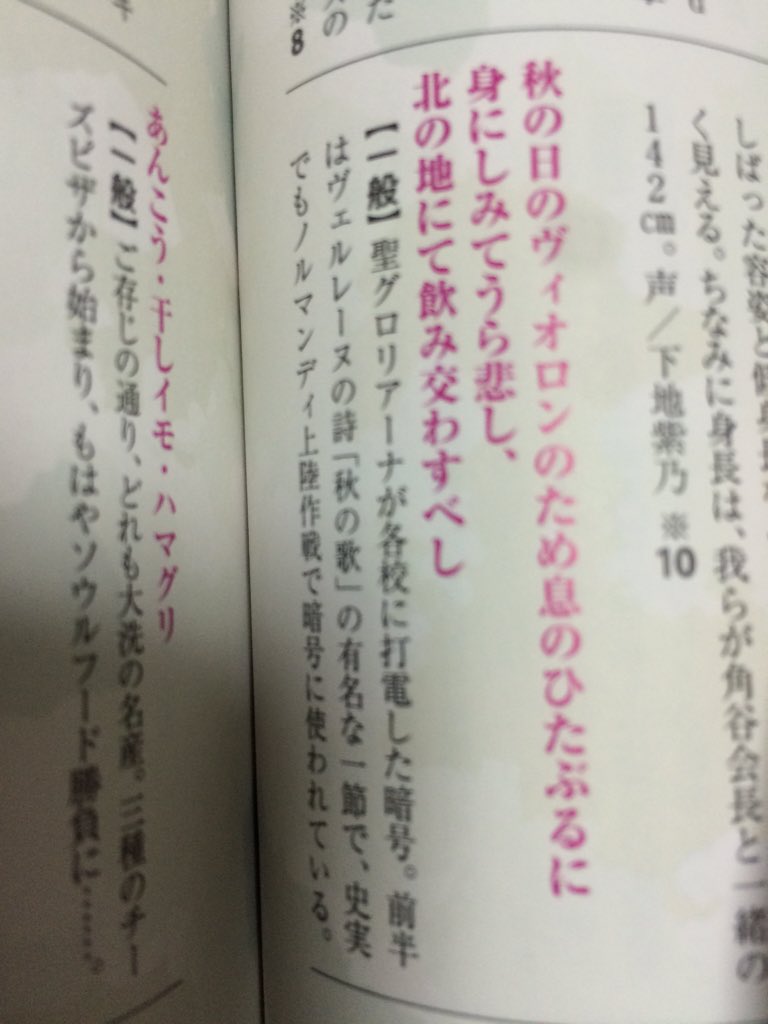 しばった容姿と
く見える。ちなみに身長は、我らが角谷会長と一緒の
142cm。声／下地紫乃 ※10
秋の日のヴィオロンのため息のひたぶるに
身にしみてうら悲し、
北の地にて飲み交わすべし
【一般】聖グロリアーナが各校に打電した暗号。前半
はヴェルレーヌの詩「秋の歌」の有名な一節で、史実
でもノルマンディ上陸作戦で暗号に使われている。
た
の
※8
あんこう・干しイモ・ハマグリ
【一般】ご存じの通り、どれも大洗の名産。三種のチー
ズピザから始まり、もはやソウルフード勝負に……。